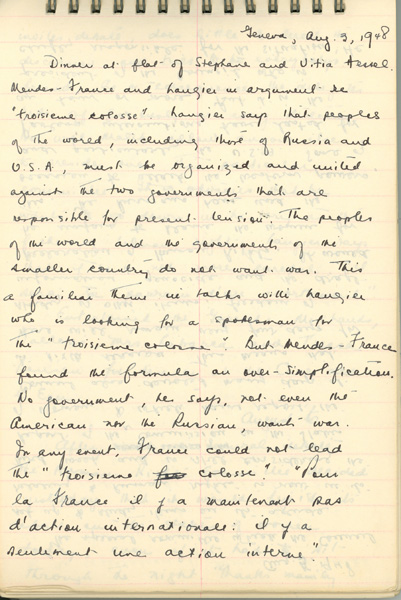 Geneva, Aug. 3, 1948
Dinner at flat of Stephane and Vitia Hessel.
Mendes-France and Laugier in argument re
"troisieme colosse". Laugier says that peoples
of the world, including those of Russia and
U.S.A, must be organized and united
against the two governments that are
responsible for present tension. The peoples
of the world and the governments of the
smaller country do not want war. This
a familiar theme in talks with Laugier
who is looking for a spokesman for
the "troisieme colosse". But Mendes-France
found the formula an over-simplification.
No government, he says, not even the
American nor the Russian, wants war.
In any event, France could not lead
the "troisieme colosse". "Pour
la France il y a maintenant pas
d'action internationale: il y a
seulement une action interne".